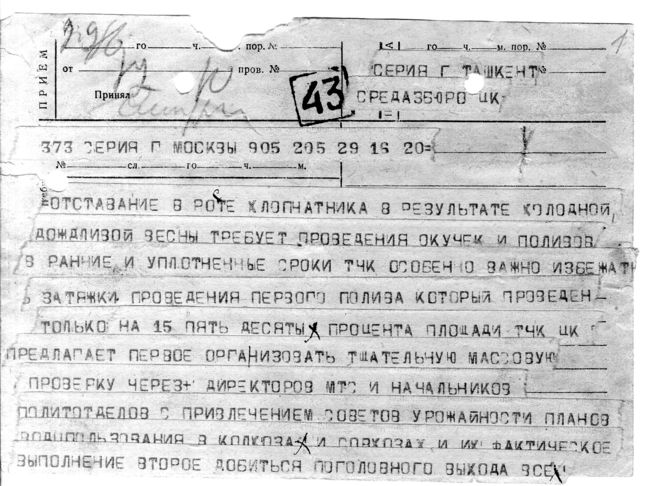 1
ПРИЕМ
го ч. пор. №
го ч. м. пор. №
от пров. №
СЕРИЯ Г ТАШКЕНТ
Принял
43
СРЕДАЗБЮРО ЦК
373 СЕРИЯ Г МОСКВЫ 905 205 29 16 20=
№ сл. го ч. м.
=ОТСТАВАНИЕ В РОСТЕ ХЛОПЧАТНИКА В РЕЗУЛЬТАТЕ ХОЛОДНОЙ,
ДОЖДЛИВОЙ ВЕСНЫ ТРЕБУЕТ ПРОВЕДЕНИЯ ОКУЧЕК И ПОЛИВОВ
В РАННИЕ И УПЛОТНЕННЫЕ СРОКИ ТЧК ОСОБЕННО ВАЖНО ИЗБЕЖАТ
Ь ЗАТЯЖКИ ПРОВЕДЕНИЯ ПЕРВОГО ПОЛИВА КОТОРЫЙ ПРОВЕДЕН
ТОЛЬКО НА 15 ПЯТЬ ДЕСЯТЫХ ПРОЦЕНТА ПЛОЩАДИ ТЧК ЦК
ПРЕДЛАГАЕТ ПЕРВОЕ ОРГАНИЗОВАТЬ ТЩАТЕЛЬНУЮ МАССОВУЮ
ПРОВЕРКУ ЧЕРЕЗ+ ДИРЕКТОРОВ МТС И НАЧАЛЬНИКОВ
ПОЛИТОТДЕЛОВ С ПРИВЛЕЧЕНИЕМ СОВЕТОВ УРОЖАЙНОСТИ ПЛАНОВ
ВОДОПОЛЬЗОВАНИЯ В КОЛХОЗАХ И СОВХОЗАХ И ИХ ФАКТИЧЕСКОЕ
ВЫПОЛНЕНИЕ ВТОРОЕ ДОБИТЬСЯ ПОГОЛОВНОГО ВЫХОДА ВСЕХ